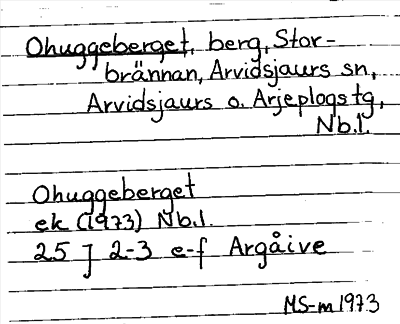 Ohuggeberget, berg, Stor-
brännan, Arvidsjaurs sn,
Arvidsjaurs o. Arjeplogs tg,
Nb.l.
Ohuggeberget
ek (1973) Nb.l.
25 J 2-3 e-f Argåive
MS-m 1973